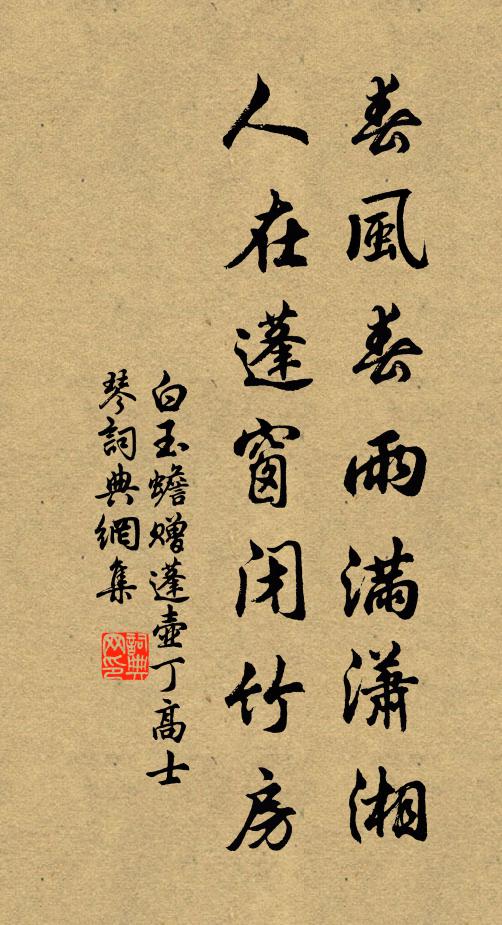 春風春雨满瀟湘
人在蓬窗闭竹房
白玉蟾赠蓬壺丁高士
琴詞典網集
詞典网印